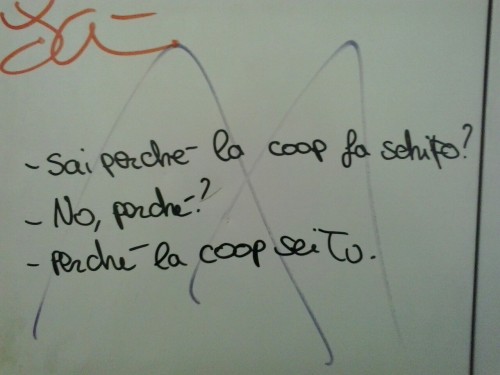 - Sai perchē la coop fa schifo?
- No, perchē?
- perchē la coop sei Tu.